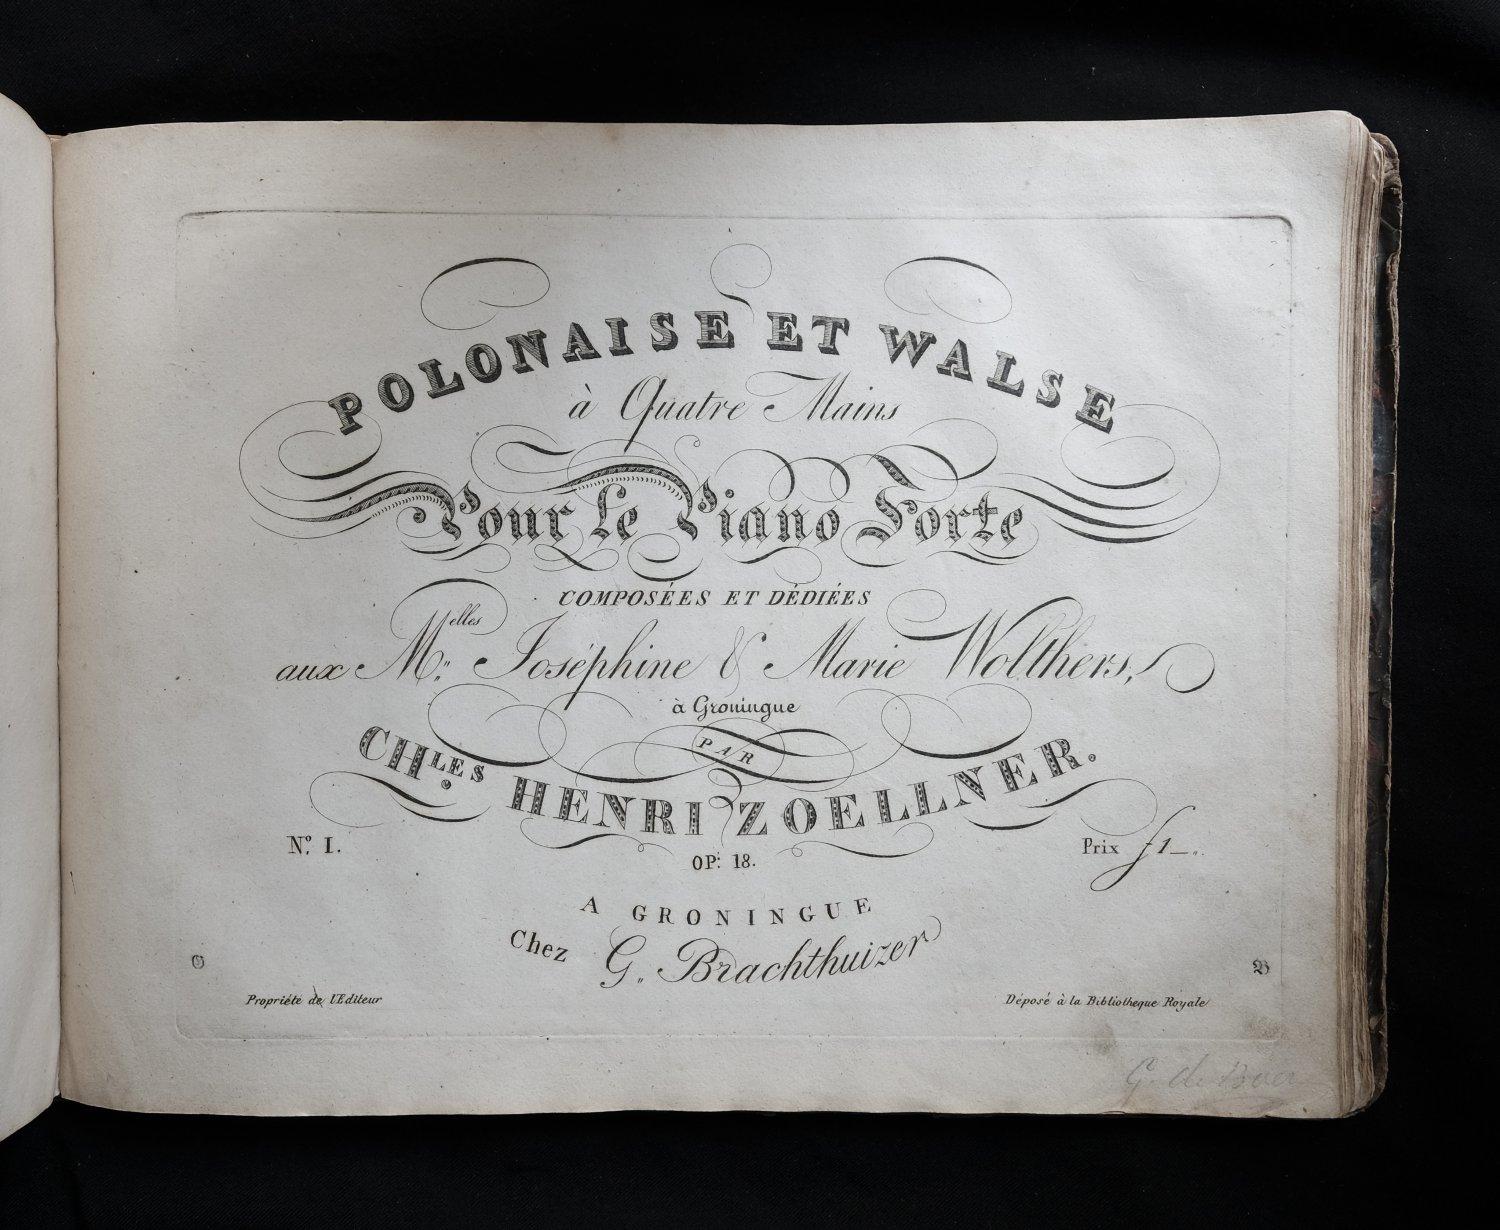 POLONAISE ET WALSE
à Quatre Mains
Pour le Piano Forte
COMPOSÉES ET DÉDIÉES
aux M.elles Joséphine & Marie Wolthers,
à Groningue
PAR
CH.LES HENRI ZOELLNER.
No. 1. Prix f 1_„.
OP: 18.
A GRONINGUE
Chez G. Brachthuizer
O B
Propriété de l'Editeur Déposé à la Bibliotheque Royale
G. de Boer